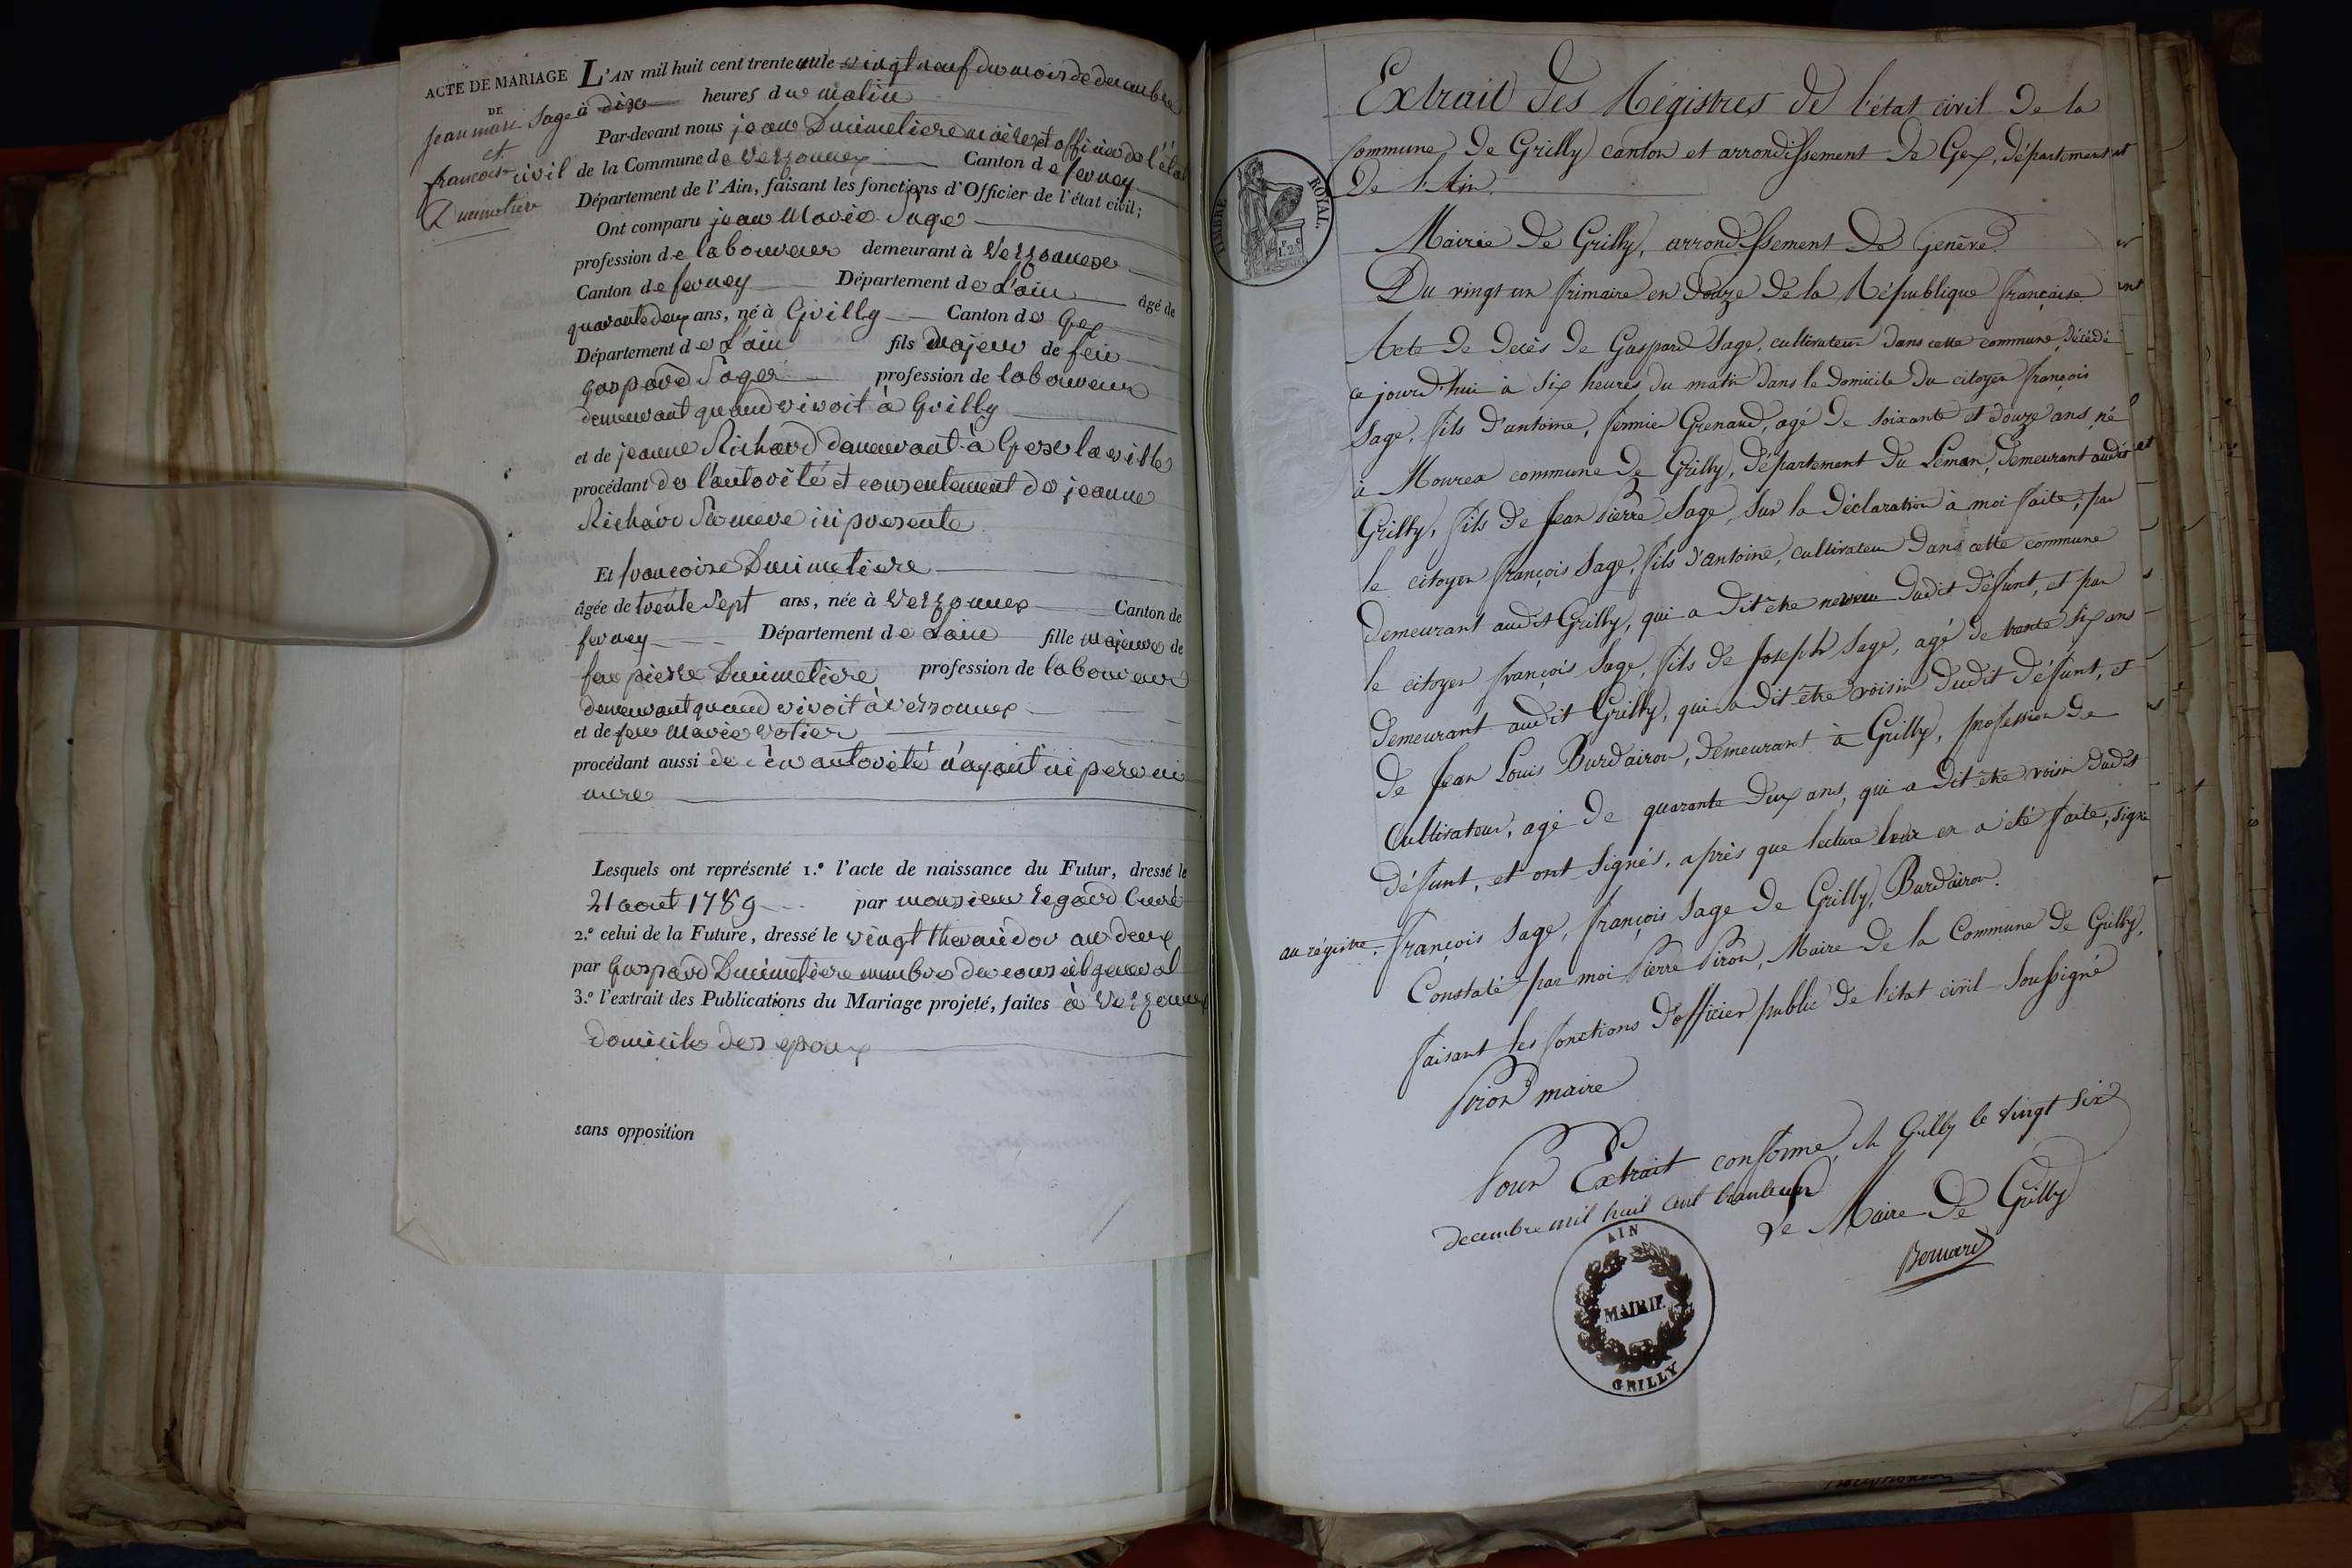 ACTE DE MARIAGE
DE
Jean marie Sage
et
francoise
Ducimetiere
L'AN mil huit cent trente un le vingt neuf du mois de decembre
à dix heures du matin
Par-devant nous jean Ducimetiere maire et officier de l'état
civil de la Commune de Versonnex Canton de ferney
Département de l'Ain, faisant les fonctions d'Officier de l'état civil;
Ont comparu jean Marie Sage
profession de laboureur demeurant à Versonnex
Canton de ferney Département de L'ain âgé de
quarante deux ans, né à Grilly Canton de Gex
Département de L'ain fils majeur de feu
gaspard Sage profession de laboureur
demeurant quand vivoit à Grilly
et de jeanne Richard demeurant à Gex la ville
procédant de l'autorité et consentement de jeanne
Richard Sa mere ici presente
Et francoise Ducimetiere
âgée de trente Sept ans, née à Versonnex Canton de
ferney Département de Lain fille majeure de
feu pierre Ducimetiere profession de laboureur
demeurant quand vivoit à versonnex
et de feue Marie
procédant aussi de autorité n'ayant ni pere ni
mere
Lesquels ont représenté 1.º l'acte de naissance du Futur, dressé le
21 aout 1789 par monsieur Curé
2.º celui de la Future, dressé le vingt thermidor an deux
par Gaspard Ducimetiere membre du conseil general
3.º l'extrait des Publications du Mariage projeté, faites à Versonnex
domicile des epoux
sans opposition
Extrait des Régistres de l'état civil de la
Commune de Grilly canton et arrondissement de Gex, département
de l'Ain.
TIMBRE ROYAL
Mairie de Grilly, arrondissement de Genève
Du vingt un frimaire an douze de la République française
Acte de decès de Gaspard Sage, cultivateur dans cette commune, décédé
ce jourd'hui à six heures du matin dans le domicile du citoyen françois
Sage, fils d'antoine, fermier Grenard, agé de soixante et douze ans, né
à Mourex commune de Grilly, département du Léman, demeurant audit
Grilly, fils de Jean Pierre Sage, sur la déclaration à moi faite, par
le citoyen françois Sage, fils d'antoine, cultivateur dans cette commune
demeurant audit Grilly, qui a dit être neveu dudit défunt, et par
le citoyen françois Sage, fils de Joseph Sage, agé de trente six ans
demeurant audit Grilly, qui a dit être voisin dudit défunt, et
de Jean Louis Burdairon, demeurant à Grilly, profession de
Cultivateur, agé de quarante deux ans, qui a dit être voisin dudit
défunt, et ont signés, après que lecture leur en a été faite, signé
au régistre. françois Sage, françois Sage de Grilly, Burdairon.
Constaté par moi Pierre Piron, Maire de la Commune de Grilly,
faisant les fonctions d'officier public de l'état civil soussigné
Piron maire
Pour Extrait conforme, à Grilly le vingt six
decembre mil huit cent trenteun
Le Maire de Grilly
Bernard
AIN
MAIRIE
GRILLY